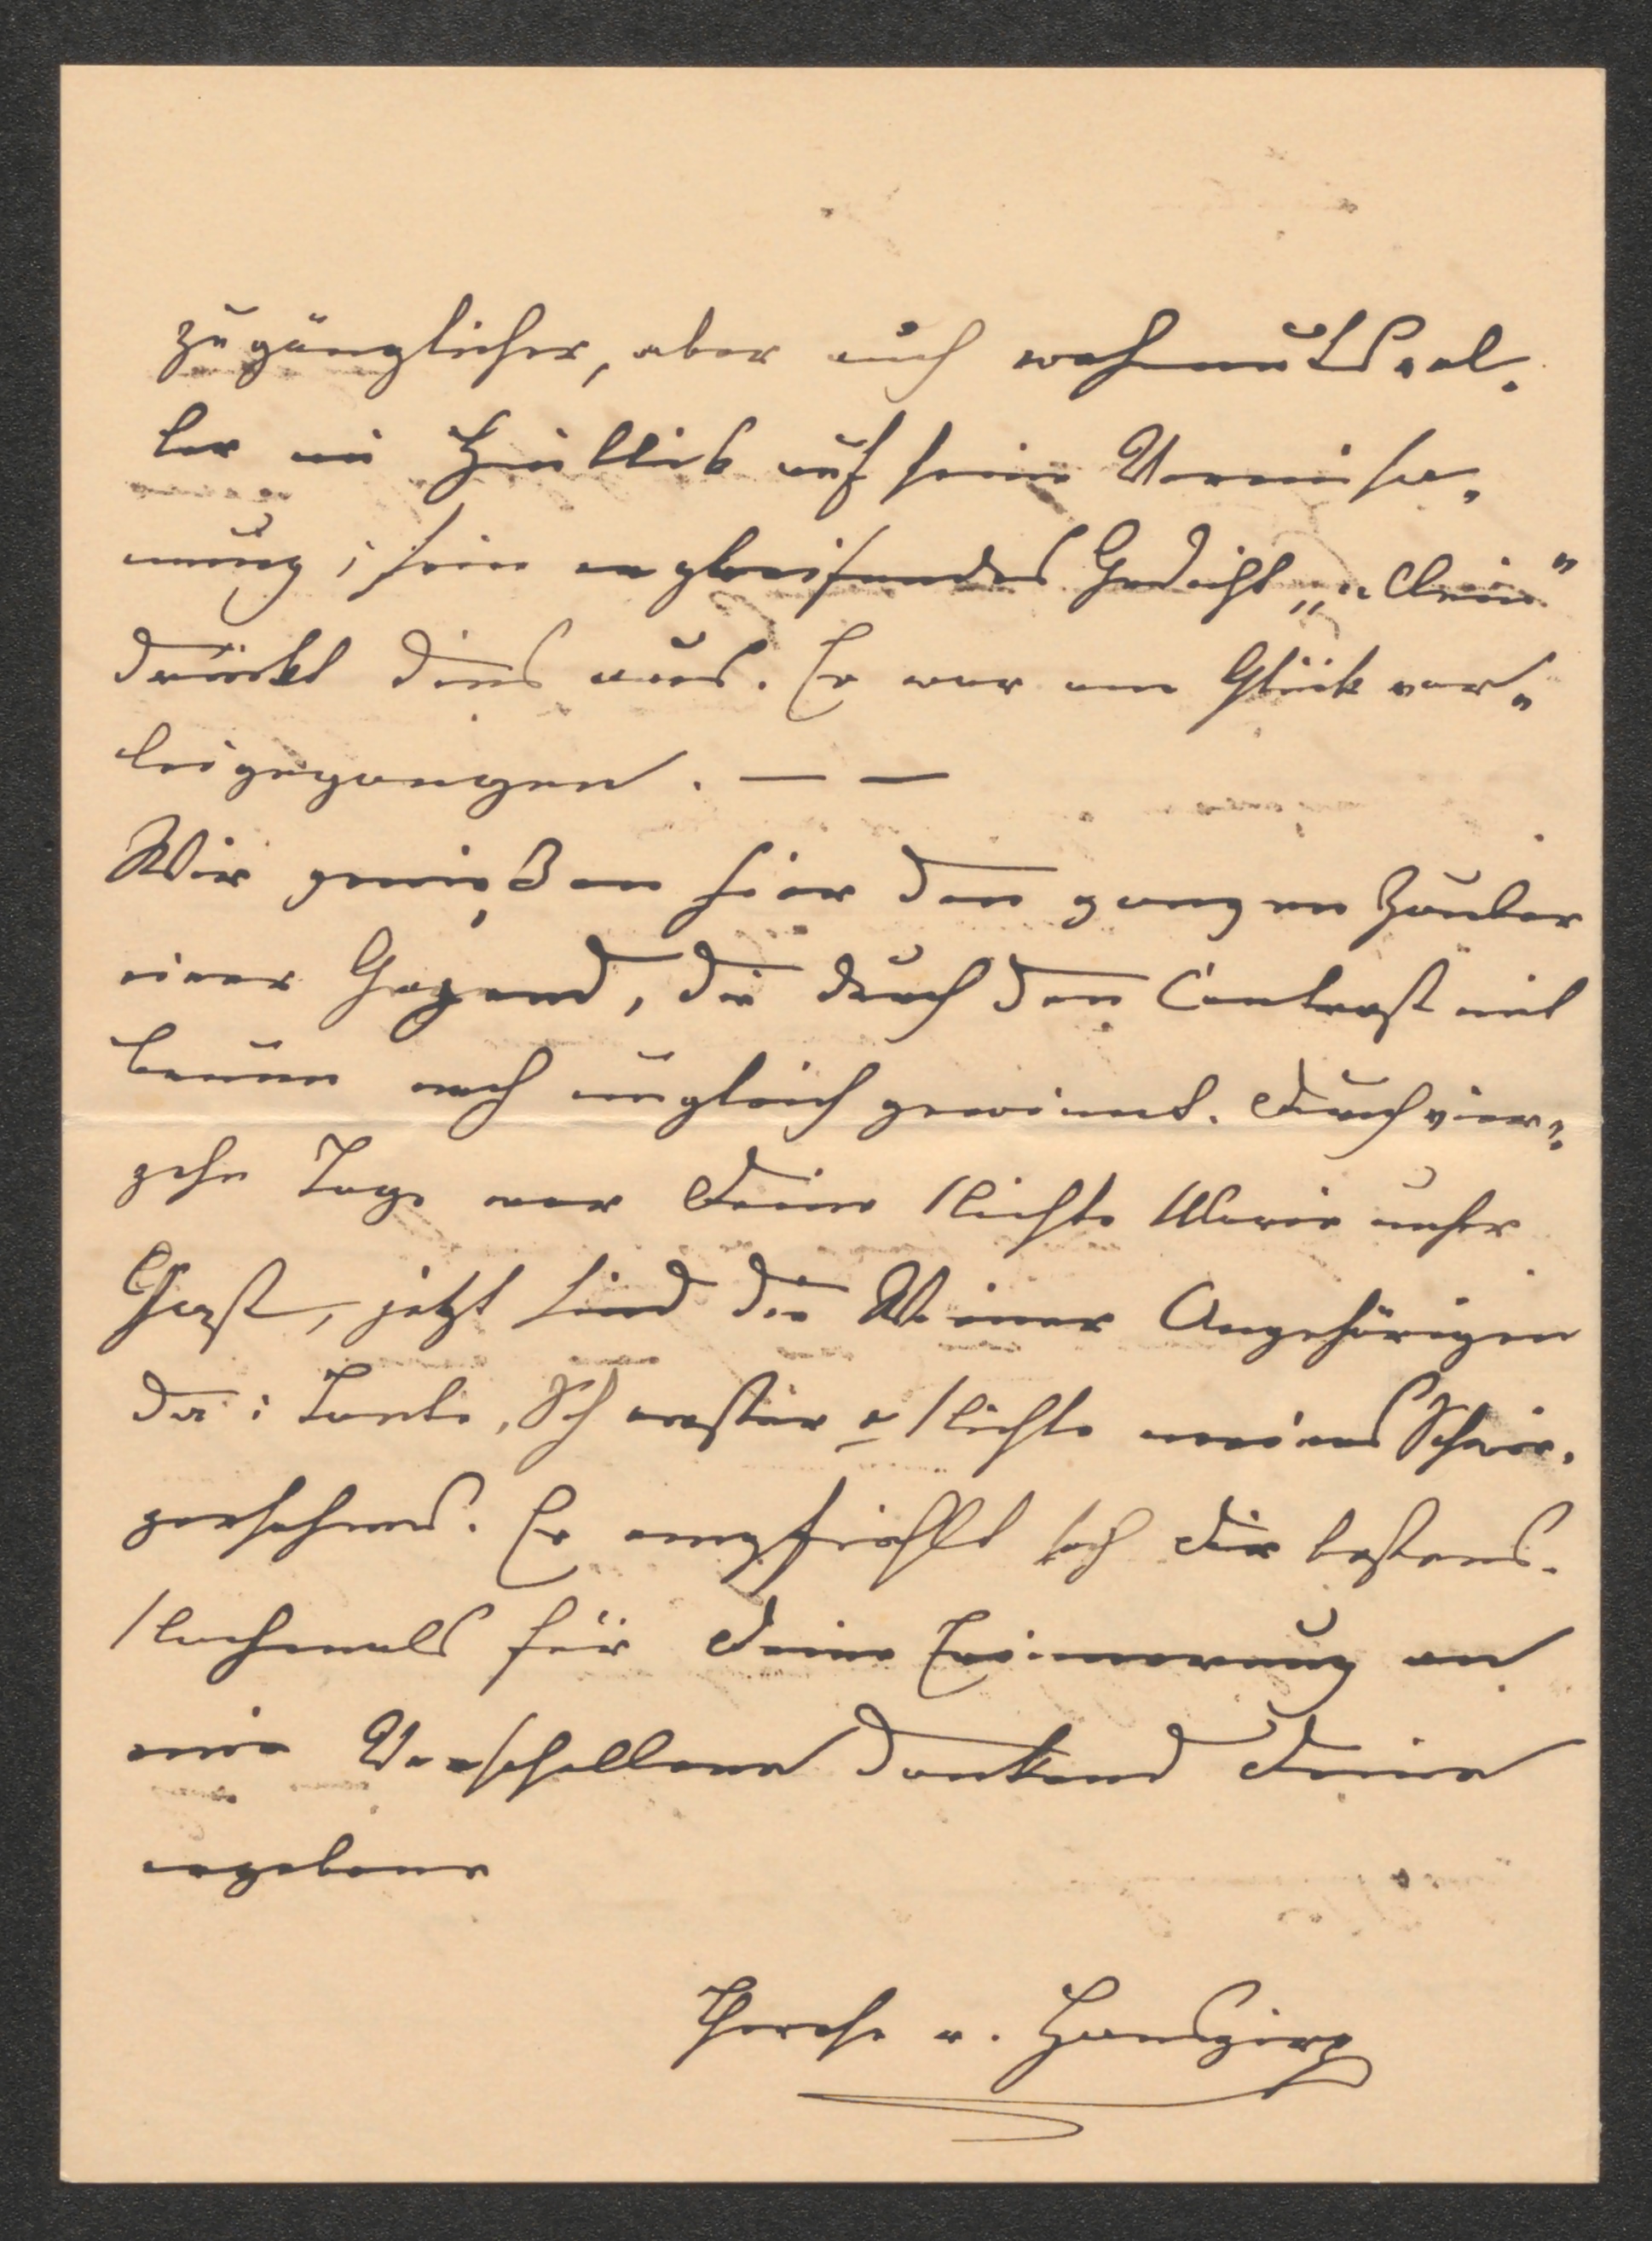 zugänglicher, aber auch wehmutsvol-
ler im Hinblick auf seine Vereinsa-
mung; sein ergreifendes Gedicht „Allein“
drückt dies aus. Er war am Glück vor-
beigegangen. — —
Wir genießen hier den ganzen Zauber
einer Gegend, die durch den Contrast mit
Brünn noch ungleich gewinnt. Durch vier-
zehn Tage war Deine Nichte Marie unser
Gast, jetzt sind die Wiener Angehörigen
da: Tante, Schwester u Nichte meines Schwie-
gersohnes. Er empfiehlt sich Dir bestens.
Nochmals für Deine Erinnerung an
eine Verschollene dankend Deine
ergebene
Therese v. Hansgirg